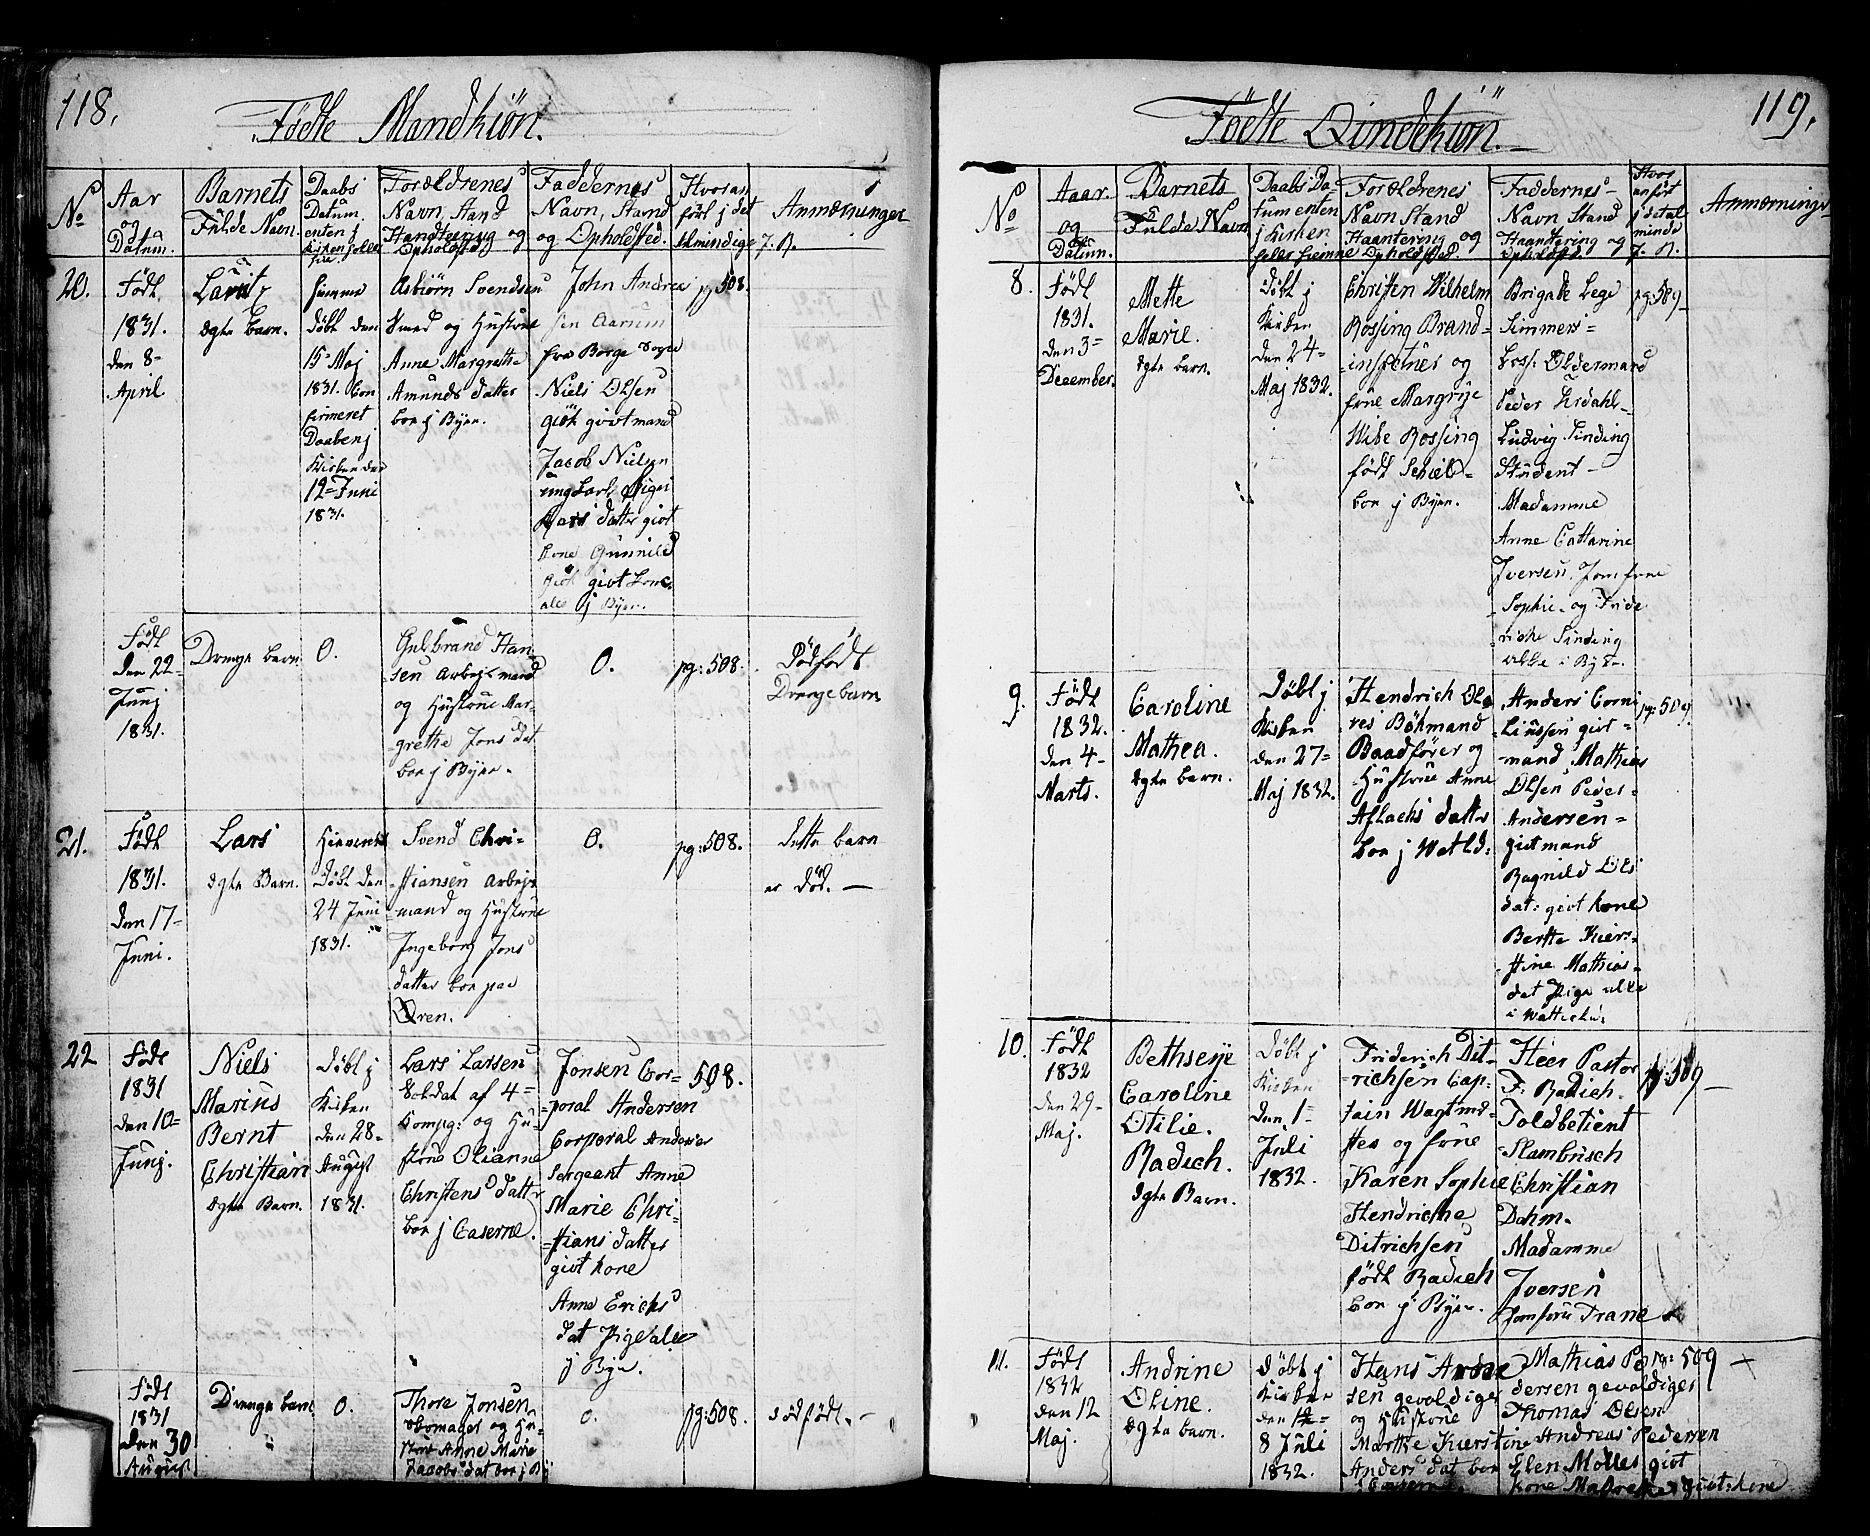 118.
Födte Mandkiön.
No
Aar
og
Datum.
Barnets
Fulde Navn.
Daabs
Datum.
enten j
Kirken heller
Forældrenes
Navn, Stand
Handtering og
Opholdsted.
Faddernes
Navn, Stand
og Opholdsted.
Hvoran
fört j det
almindige J. R.
Anmærninger
20.
Födt
1831.
den 8-
April.
Lauritz
ægte barn.
hiemme
döbt den
15- Maj
1831. Con
firmeret
Daaben j
Kirken den
12- Juni
1831.
Asbiörn Svendsen
Smed og Hustrue
Anne Margrethe
Amunds datter
boe j Byen.
John Andrea
sen Aarum
fra Borge Sogn
Niels Olsen
giöt givt mand
Jacob Nielsen
ung karl Siges
Lars datter givt
kone Gunnild
giöt givt kone
alle j Byen.
pg: 508.
Födt
den 22-
Junj
1831.
Drenge barn
0.
Gulbrand Han
sen Arbejdsmand
og Hustrue Mar-
grethe Jons dat
boe j Byen.
0.
pg: 508.
Dödfödt
Drengebarn
21.
Födt
1831.
den 17-
Juni.
Lars
ægte Barn.
Hiemme
döbt den
24 Juni
1831.
Svend Chri-
stiansen Arbejds
mand og Hustrue
Ingeborg Jons
datter boe paa
Ören.
0.
pg: 508.
dette barn
er död. —
22
Födt
1831
den 10-
Junj.
Niels
Marius
Bernt
Christian
ægte Barn.
Döbt j
Kirken
den 28-
August
1831.
Lars Larsen
Soldat af 4-
Compg: og Hu-
strue Olianne
Christens datter
boe j Caserne.
Jonsen Cor-
poral Andersen
Corporal Andersen
Sergeant Anne
Marie Chri-
stians datter
givt kone
Anne Erichs
dat Pige alle
j Byen.
508.
Födt
1831
den 30
August
Drenge barn
0.
Thore Jonsen
Skomager og Hu-
strue Anne Marie
Jacobs dat boe j By
0.
pg: 508.
dödfödt. -
119.
Födte Qindekiön.
No
Aaar
og
Datum.
Barnets
Fulde Navn
Daabs Da-
tum enten
j Kirken
heller hiemme
Forældrenes
Navn Stand
Haantering og
Opholdsted.
Faddernes
Navn Stand
Haandtering og
Opholdsted.
Hvor
anfört
j det al
minde
J. R.
Anmærninger
8.
Födt
1831.
den 3-
December.
Mette
Marie.
ægte barn.
Döbt j
Kirken
den 24-
Maj 1832.
Christen Wilhelm
Rossing Brand-
inspector og
frue Margrete
Wibe Rossing
födt Schiel-
boe j Byen.
Brigade Lege
Simmers-
Loss: Oldermand
Peder Urdahl-
Ludvig Sinding
Student -
Madamme
Anne Catharine
Iversen. Jomfrue
Sophie- og Fride
riche Sinding
alle i Byen.
pg: 509-
9.
Födt
1832.
den 4-
Marts.
Caroline
Mathea.
ægte barn.
Döbt j
Kirken
den 27-
Maj 1832.
Hendrich Ola
res Bökmand
Baadförer og
Hustrue Anne
Aslachs datter
boe j Watld:
Anders Corni
liussen givt-
mand Mathias
Olsen Peder-
Andersen-
givt mand
Ragnild Ols
dat: givt kone
Berthe Kiers-
stine Mathias-
dat Pige alle
pg: 509.
10.
Födt
1832
den 29-
Maj.
Bethseye
Caroline
Otilie.
Radich.
ægte Barn.
Döbt j
Kirken
den 1-
Juli
1832.
Friderich Dit-
richsen Cap-
tain Wagtme-
ster og frue
Karen Sophie
Hendriche
Ditrichsen
födt Radich
boe j Byen.
Heer Pastor
F: Radich.
Toldbetient
Stambusch
Christian
Dahm.
Madamme
Iversen
Jomfrue Trane
pg: 509 -
11.
Födt
1832
den 12
Maj.
Andrine
Oline.
ægte barn.
Döbt j
Kirken
den 12-
8 Juli
1832.
Hans Andre
sen gevoldiger
og Hustrue
Marthe Kierstine
Anders dat boe
Mathias Pe
dersen gevoldiges
Thomas Olsen
Andreas Pedersen
Elen Molles givt
kone Magrethe givt kone
pg: 509 +